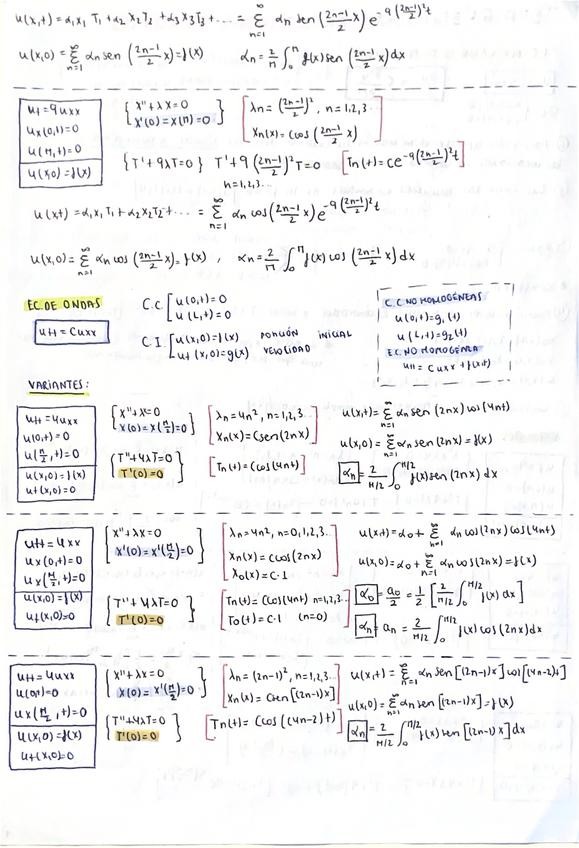 u(x,t) = α₁x₁ T₁ + α₂ x₂T₂ + α₃ x₃T₃ + ... = ∑_{n=1}^{∞} αn sen (2n-1/2 x) e^{-9(2n-1/2)²t}
u(x,0) = ∑_{n=1}^{∞} αn sen (2n-1/2 x) = f(x)   αn = 2/π ∫₀^π f(x) sen (2n-1/2 x) dx
ut = 9uxx
ux(0,t) = 0
u(π,t) = 0
u(x,0) = f(x)
X'' + λX = 0
X'(0) = X(π) = 0
λn = (2n-1/2)², n = 1,2,3...
Xn(x) = Ccos (2n-1/2 x)
{T' + 9λT = 0}   T' + 9 (2n-1/2)² T = 0   Tn(t) = Ce^{-9(2n-1/2)²t}
n=1,2,3...
u(x,t) = α₁x₁ T₁ + α₂ x₂T₂ + ... = ∑_{n=1}^{∞} αn cos (2n-1/2 x) e^{-9(2n-1/2)²t}
u(x,0) = ∑_{n=1}^{∞} αn cos (2n-1/2 x) = f(x) , αn = 2/π ∫₀^π f(x) cos (2n-1/2 x) dx
EC. DE ONDAS
utt = Cuxx
C.C. [ u(0,t) = 0
u(L,t) = 0
C.I. [ u(x,0) = f(x)   POSICIÓN INICIAL
ut(x,0) = g(x)   VELOCIDAD
C.C NO HOMOGÉNEAS
u(0,t) = g₁(t)
u(L,t) = g₂(t)
EC. NO HOMOGÉNEA
utt = Cuxx + f(x,t)
VARIANTES:
utt = 4uxx
u(0,t) = 0
u(π/2, t) = 0
u(x,0) = f(x)
ut(x,0) = 0
X'' + λX = 0
X(0) = X(π/2) = 0
T'' + 4λT = 0
T'(0) = 0
λn = 4n², n = 1,2,3...
Xn(x) = Csen(2nx)
Tn(t) = Ccos(4nt)
u(x,t) = ∑_{n=1}^{∞} αn sen (2nx) cos (4nt)
u(x,0) = ∑_{n=1}^{∞} αn sen (2nx) = f(x)
αn = 2/π/2 ∫₀^{π/2} f(x) sen (2nx) dx
utt = 4uxx
ux(0,t) = 0
ux(π/2, t) = 0
u(x,0) = f(x)
ut(x,0) = 0
X'' + λX = 0
X'(0) = X'(π/2) = 0
T'' + 4λT = 0
T'(0) = 0
λn = 4n², n = 0,1,2,3...
Xn(x) = Ccos(2nx)
X₀(x) = C·1
Tn(t) = Ccos(4nt) n=1,2,3...
T₀(t) = C·1 (n=0)
u(x,t) = α₀ + ∑_{n=1}^{∞} αn cos(2nx) cos(4nt)
u(x,0) = α₀ + ∑_{n=1}^{∞} αn cos(2nx) = f(x)
α₀ = a₀/2 = 1/2 [2/π/2 ∫₀^{π/2} f(x) dx]
αn = an = 2/π/2 ∫₀^{π/2} f(x) cos (2nx) dx
utt = 4uxx
u(0,t) = 0
ux(π/2, t) = 0
u(x,0) = f(x)
ut(x,0) = 0
X'' + λX = 0
X(0) = X'(π/2) = 0
T'' + 4λT = 0
T'(0) = 0
λn = (2n-1)², n = 1,2,3...
Xn(x) = Csen[(2n-1)x]
Tn(t) = Ccos((4n-2)t)
u(x,t) = ∑_{n=1}^{∞} αn sen [(2n-1)x] cos [(4n-2)t]
u(x,0) = ∑_{n=1}^{∞} αn sen [(2n-1)x] = f(x)
αn = 2/π/2 ∫₀^{π/2} f(x) sen [(2n-1)x] dx